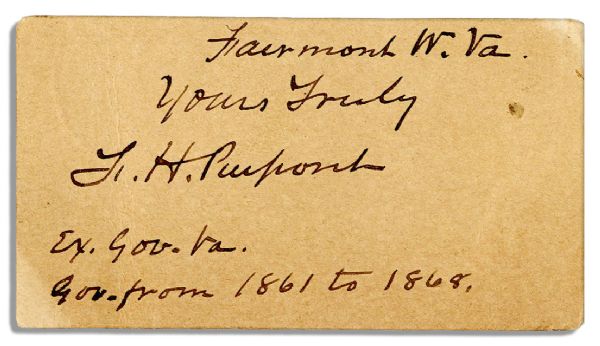 Fairmont W. Va.
Yours Truly
F. H. Pierpont
Ex. Gov. Va.
Gov. from 1861 to 1868.